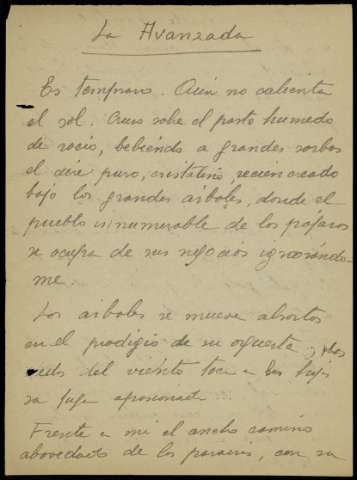 La Avanzada
Es temprano. Aún no calienta
el sol. Cruzo sobre el pasto humedo
de rocío, bebiendo a grandes sorbos
el aire puro, cristalino, recien creado
bajo los grandes árboles, donde el
pueblo innumerable de los pájaros
se ocupa de sus negocios ignorándo-
me.
Los árboles se mueve absortos
en el prodigio de su orquesta, y los
del viento toca a las
su fuga apasionante
Frente a mi el ancho camino
abovedado de los paraísos, con su